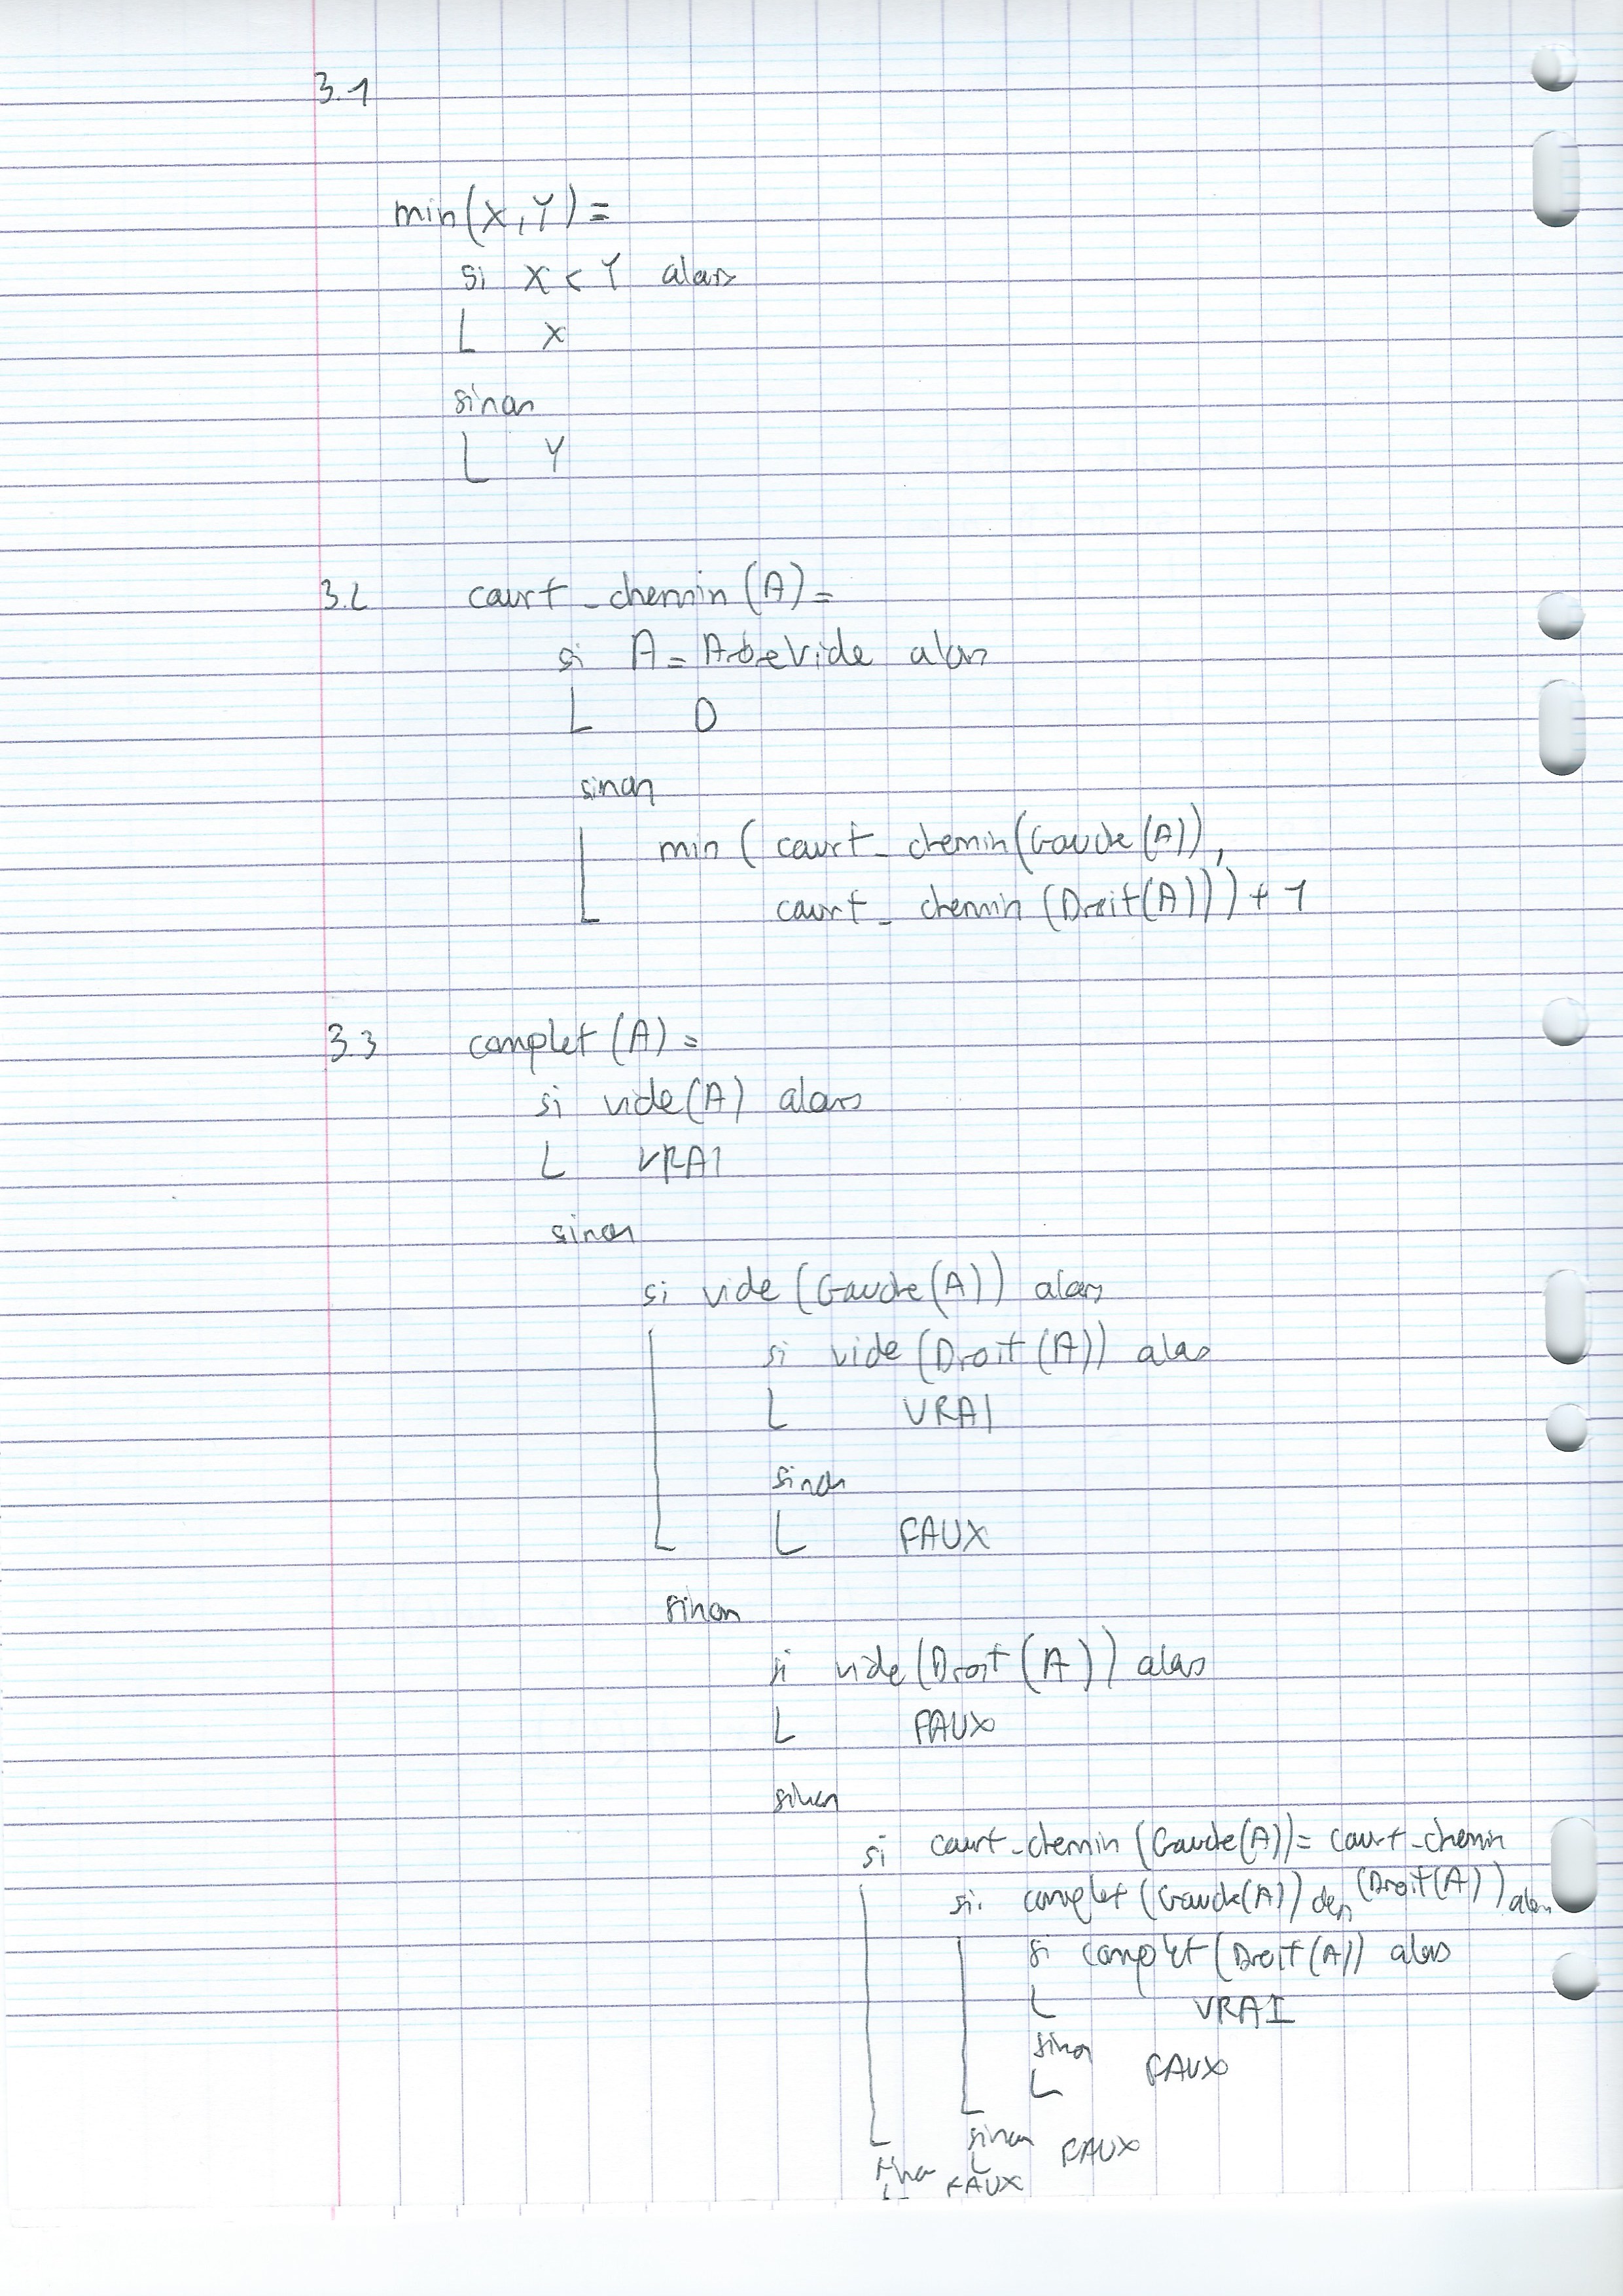 3.1
min(X,Y)=
si X < Y alors
X
sinon
Y
3.2 court_chemin(A)=
si A = ArbreVide alors
0
sinon
min( court_chemin(Gauche(A)),
court_chemin(Droit(A)))+1
3.3 complet(A)=
si vide(A) alors
VRAI
sinon
si vide(Gauche(A)) alors
si vide(Droit(A)) alors
VRAI
sinon
FAUX
sinon
si vide(Droit(A)) alors
FAUX
sinon
si court_chemin(Gauche(A))=court_chemin
(Droit(A)) alors
si complet(Gauche(A))
si complet(Droit(A)) alors
VRAI
sinon
FAUX
sinon
FAUX
sinon
FAUX